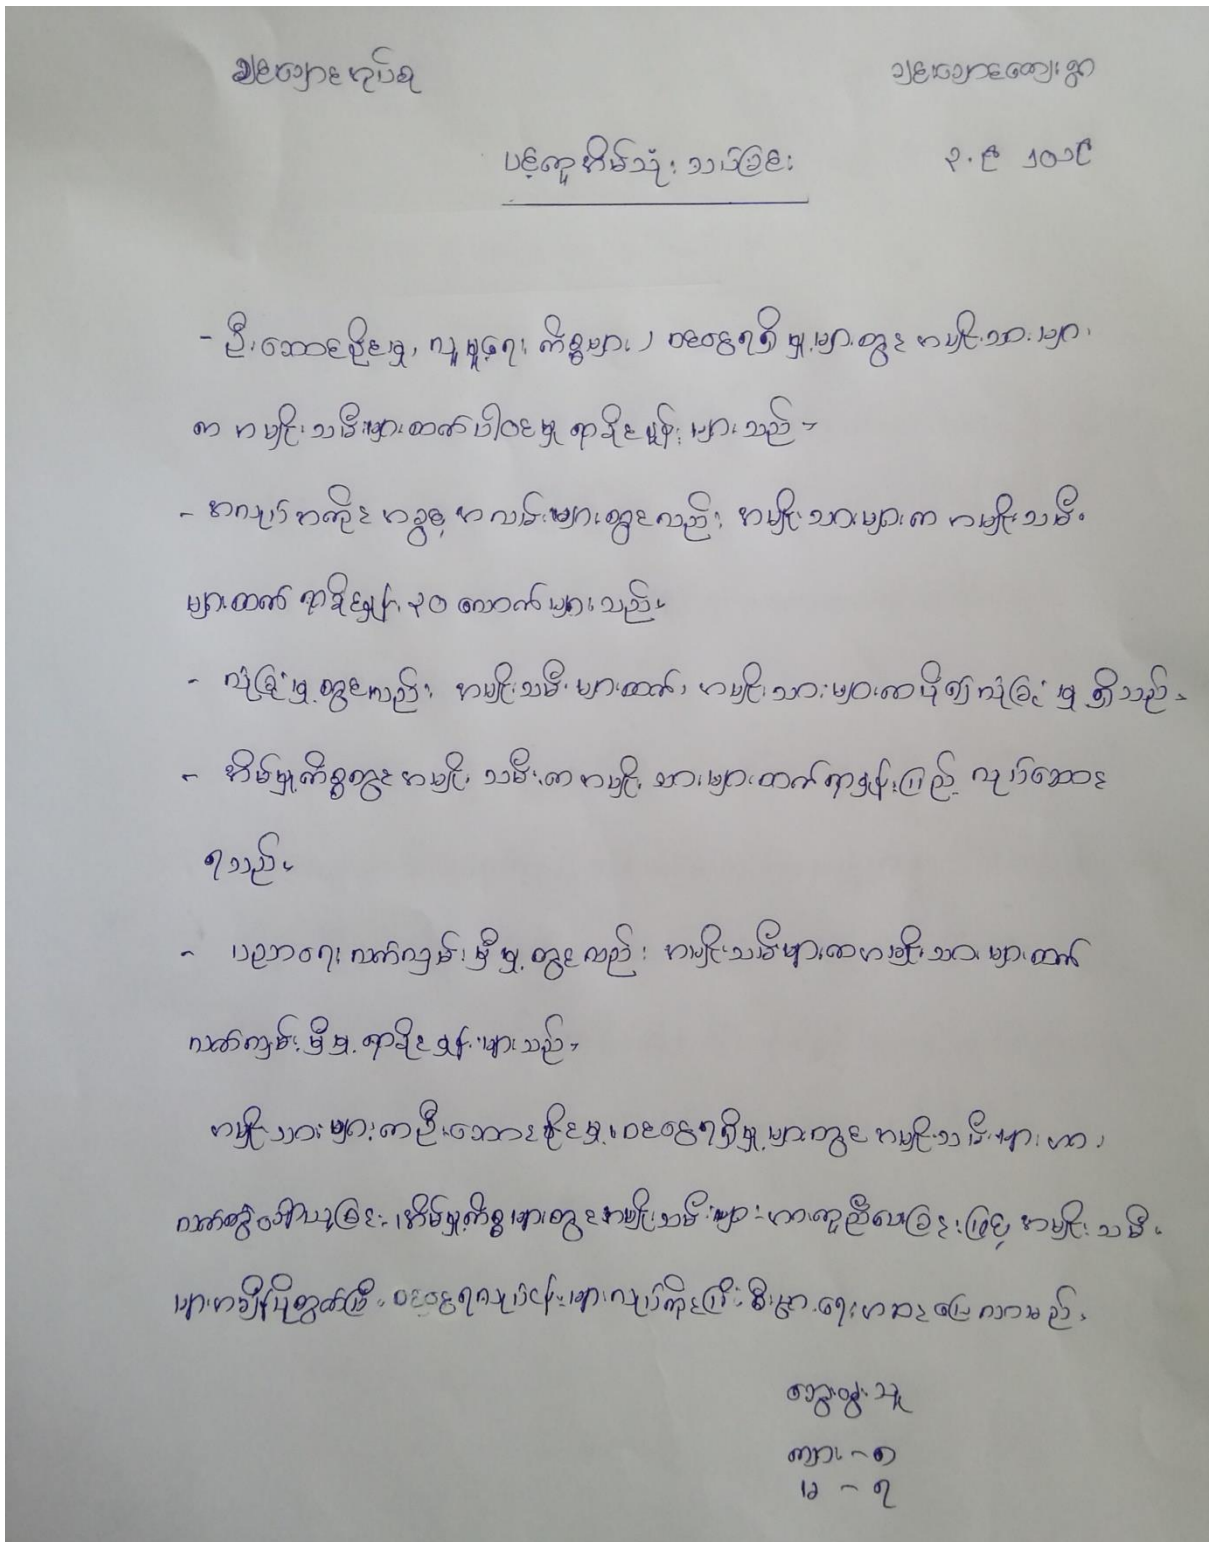 ချင်းသောင်းအုပ်စု
ချင်းသောင်းကျေးရွာ
ပင့်ကူအိမ်သုံးသပ်ခြင်း
၃.၉ ၂၀၁၉
- ဦးဆောင်နိုင်မှု, လူမှုရေးကိစ္စများ၊ ဝင်ငွေရရှိမှုများတွင် အမျိုးသားများ
က အမျိုးသမီးများထက်ပါဝင်မှု ရာခိုင်မှုန်းများသည်။
- အလုပ်အကိုင်အခွင့်အလမ်းများတွင်လည်း အမျိုးသားများက အမျိုးသမီး
များထက် ရာခိုင်မှုန်း ၃၀ လောက်များသည်။
- လုံခြုံမှုတွင်လည်း အမျိုးသမီးများထက် အမျိုးသားများကပို၍လုံခြုံမှုရှိသည်။
- အိမ်မှုကိစ္စတွင် အမျိုးသမီးက အမျိုးသားများထက်ရာနှုန်းပြည့် လုပ်ဆောင်
ရသည်။
- ပညာရေး လက်လှမ်းမှီမှုတွင်လည်း အမျိုးသမီးများကအမျိုးသားများထက်
လက်လှမ်းမှီမှုရာခိုင်မှုန်းများသည်။
အမျိုးသားများကဦးဆောင်နိုင်မှု၊ ဝင်ငွေရရှိမှုများတွင် အမျိုးသမီးများအား
လက်တွဲခေါ်ယူခြင်း၊ အိမ်မှုကိစ္စများတွင်အမျိုးသမီးများအားကူညီပေးခြင်းဖြင့် အမျိုးသမီး
များအချိန်ပိုထွက်ပြီး ဝင်ငွေရလုပ်ငန်းများလုပ်ကိုင်ပြီးစီးပွားရေးအဆင်ပြေလာမည်။
ဆွေးနွေးသူ
ကျား - ၅
မ - ၇